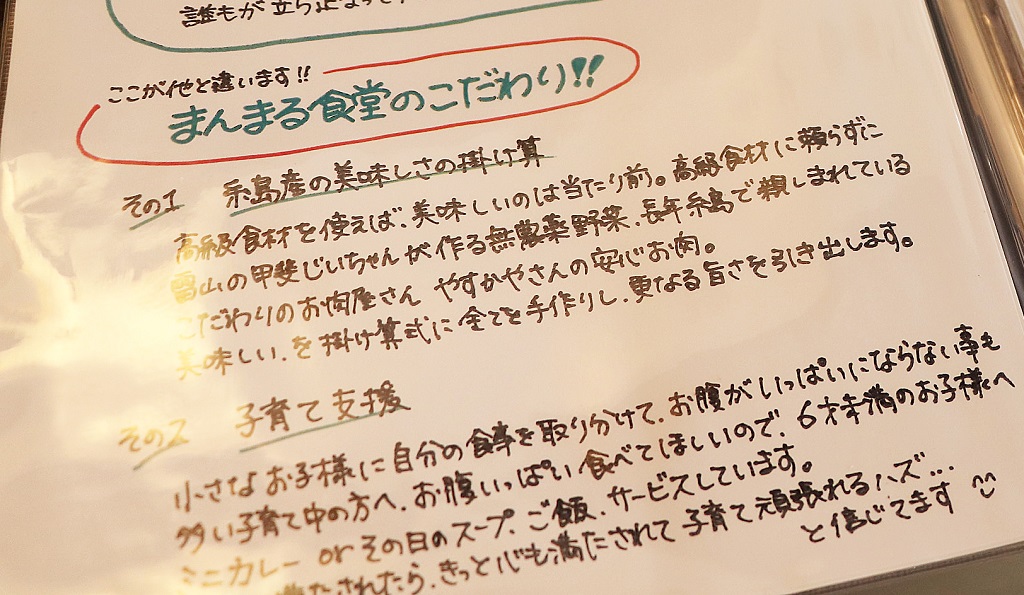 誰もが立ち止まって
ここが他と違います!!
まんまる食堂のこだわり!!
その1 糸島産の美味しさの掛け算
高級食材を使えば、美味しいのは当たり前。高級食材に頼らずに
雷山の甲斐じいちゃんが作る無農薬野菜、長年糸島で親しまれている
こだわりのお肉屋さん やすかやさんの安心お肉。
美味しい、を掛け算式に全てを手作りし、更なる旨さを引き出します。
その2 子育て支援
小さなお子様に自分の食事を取り分けて、お腹がいっぱいにならない事も
多い子育て中の方へ、お腹いっぱい食べてほしいので、6才未満のお子様へ
ミニカレー orその日のスープ、ご飯、サービスしています。
たされたら、きっと心も満たされて子育て頑張れるハズ...
と信じてます